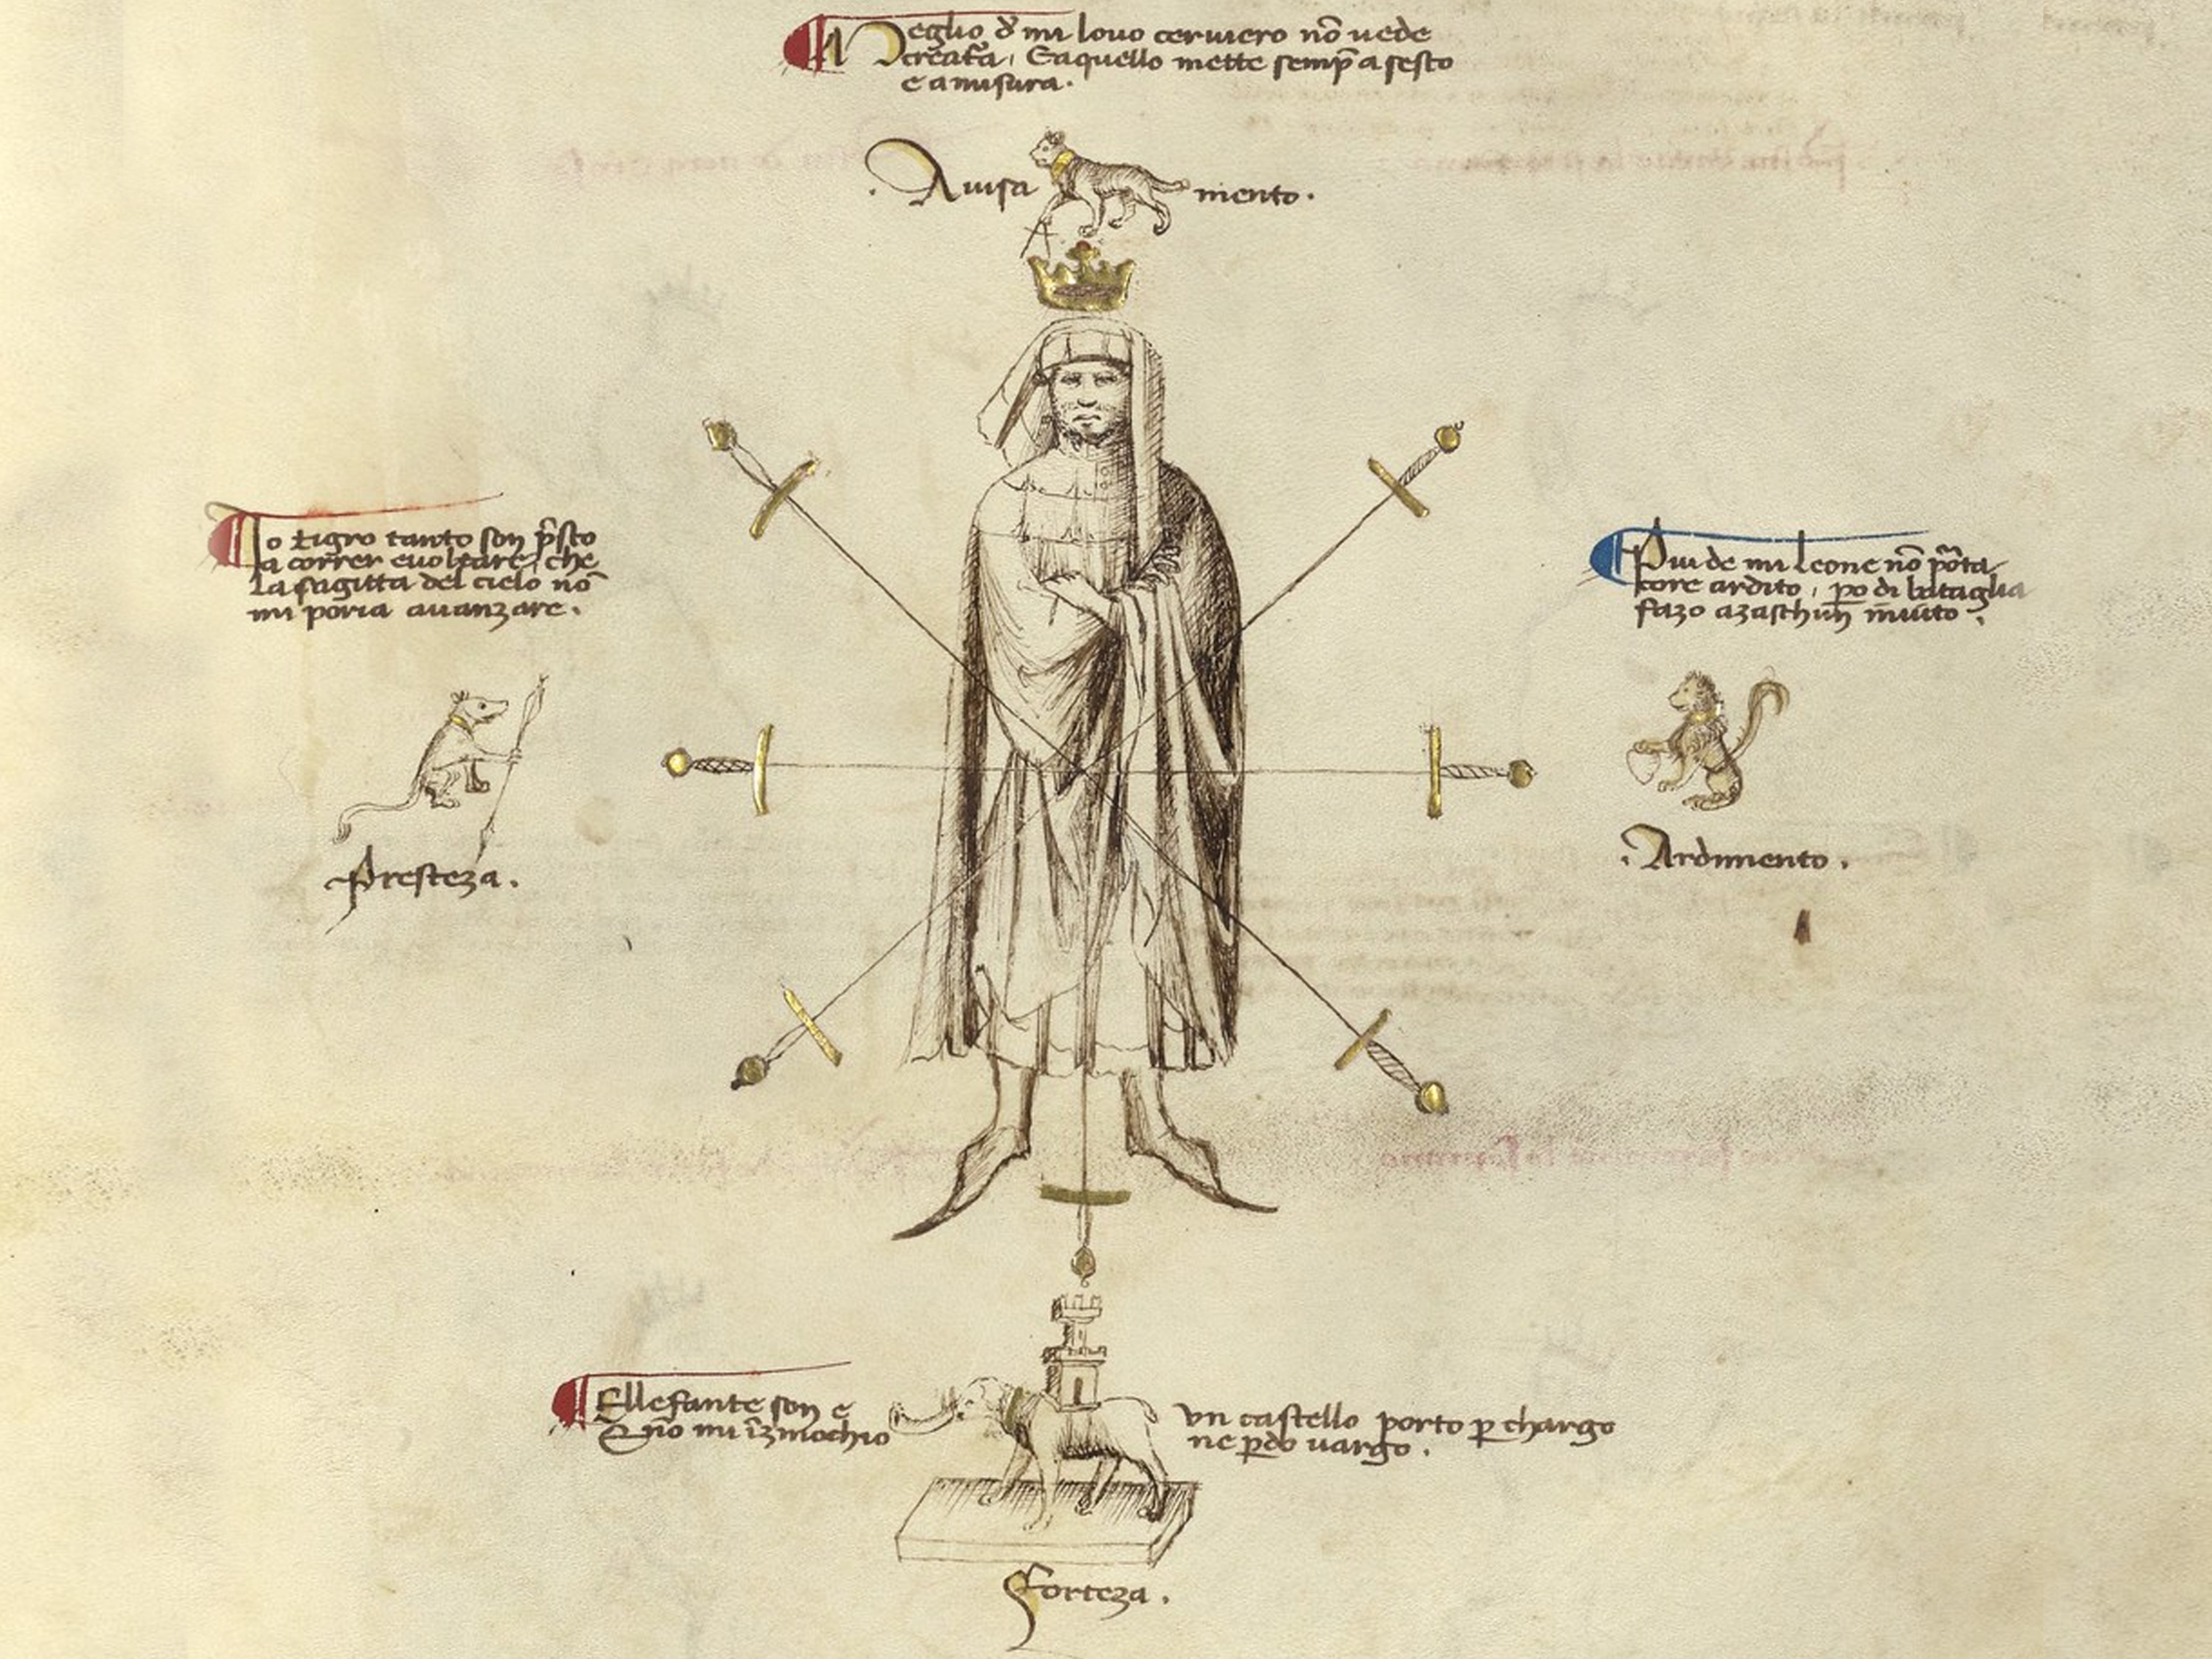 Meglio de mi lovo cerviero nō vede
creatᵃra. E aquello mette semp̄ a sesto
e a misura.
Avisa mento.
Io tigro tanto son p̄sto
a correr e voltare, che
la sagitta del cielo nō
mi poria avanzare.
Più de mi leone nō porta
core ardito, po di bataglia
fazo azaschun invito.
Presteza.
Ardimento.
Ellefante son e un castello porto p chargo
E nō mi inzinochio ne pdo vargo.
Forteza.